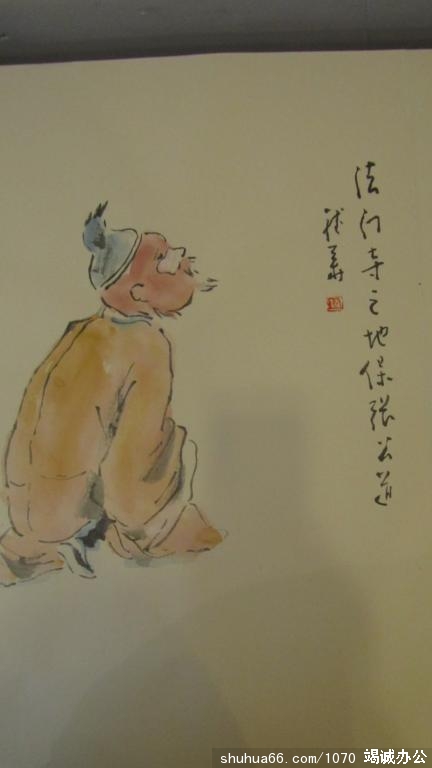 法门寺之地保张公道
shuhua66.com/1070 竭诚办公